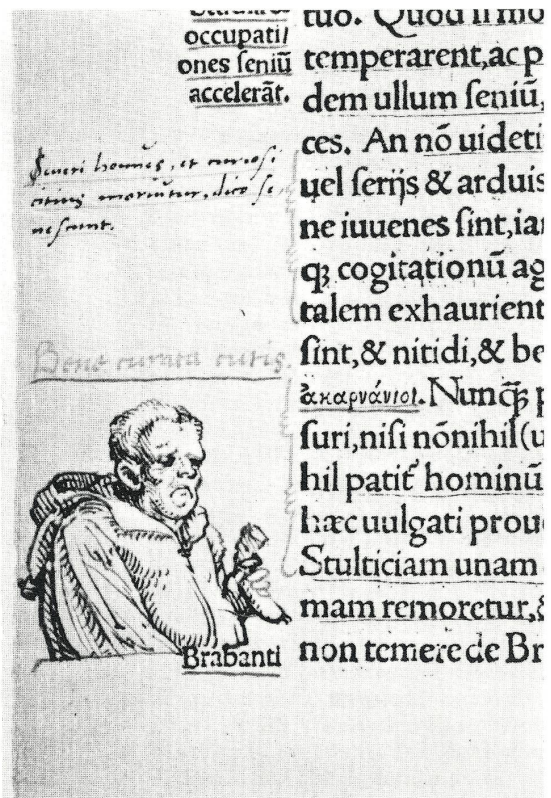 occupati/
ones ſeniū
accelerāt.
Seueri homines, et curioſi
citius moriuntur, dico ſe-
neſcunt.
Bene curata cutis.
Brabanti
tuo. Quod ſi mo
temperarent, ac p
dem ullum ſeniū,
ces. An nō uideti
uel ſerijs & arduis
ne iuuenes ſint, ia
qꝫ cogitationū ag
talem exhaurient
ſint, & nitidi, & be
ἀκαρνάνιοι. Nunꝙ̄ p
ſuri, niſi nōnihil (u
hil patit᷑ hominū
hæc uulgati prou
Stulticiam unam
mam remoretur, &
non temere de Br